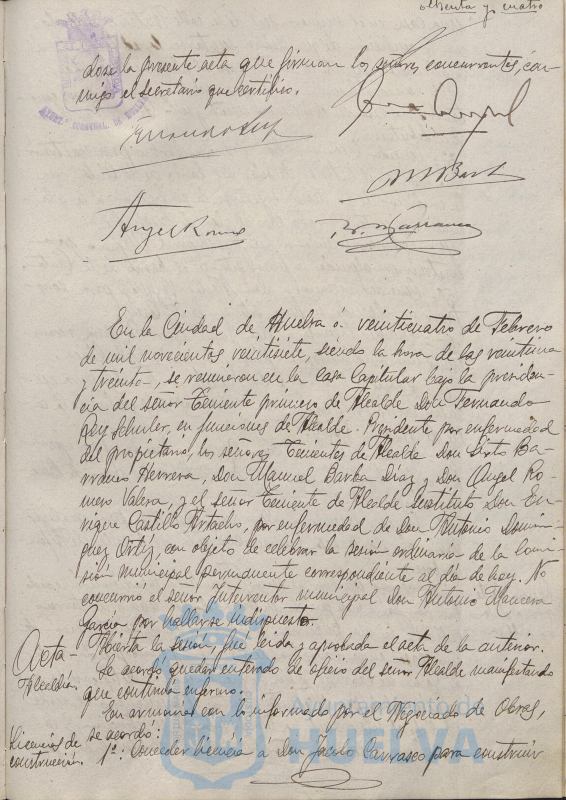 ochenta y cuatro
dose la presente acta que firman los señores concurrentes, con-
migo el secretario que certifico.
M Barba
Angel Romero
En la Ciudad de Huelva á veinticuatro de Febrero
de mil novecientos veintisiete, siendo la hora de las veintiuna
y treinta, se reunieron en la casa Capitular bajo la presiden-
cia del señor Teniente primero de Alcalde Don Fernando
Rey Schuler, en funciones de Alcalde-Presidente por enfermedad
del propietario, los señores Tenientes de Alcalde Don Sixto Ba-
rranco Herrera, Don Manuel Barba Díaz y Don Angel Ro-
mero Valera, y el señor Teniente de Alcalde Sustituto Don En-
rique Castillo Artacho, por enfermedad de Don Antonio Domín-
guez Ortiz, con objeto de celebrar la sesión ordinaria de la Comi-
sión municipal permanente correspondiente al día de hoy. No
concurrió el señor Interventor municipal Don Antonio Mancera
García por hallarse indispuesto.
Acta- Abierta la sesión, fué leída y aprobada el acta de la anterior.
Alcaldía. Se acordó quedar enterado de oficio del señor Alcalde manifestando
que continúa enfermo.
En armonía con lo informado por el Negociado de Obras,
Licencias de se acordó:
construcción. 1º: Conceder licencia á Don Jacobo Carrasco para construir
Ayuntamiento de
HUELVA